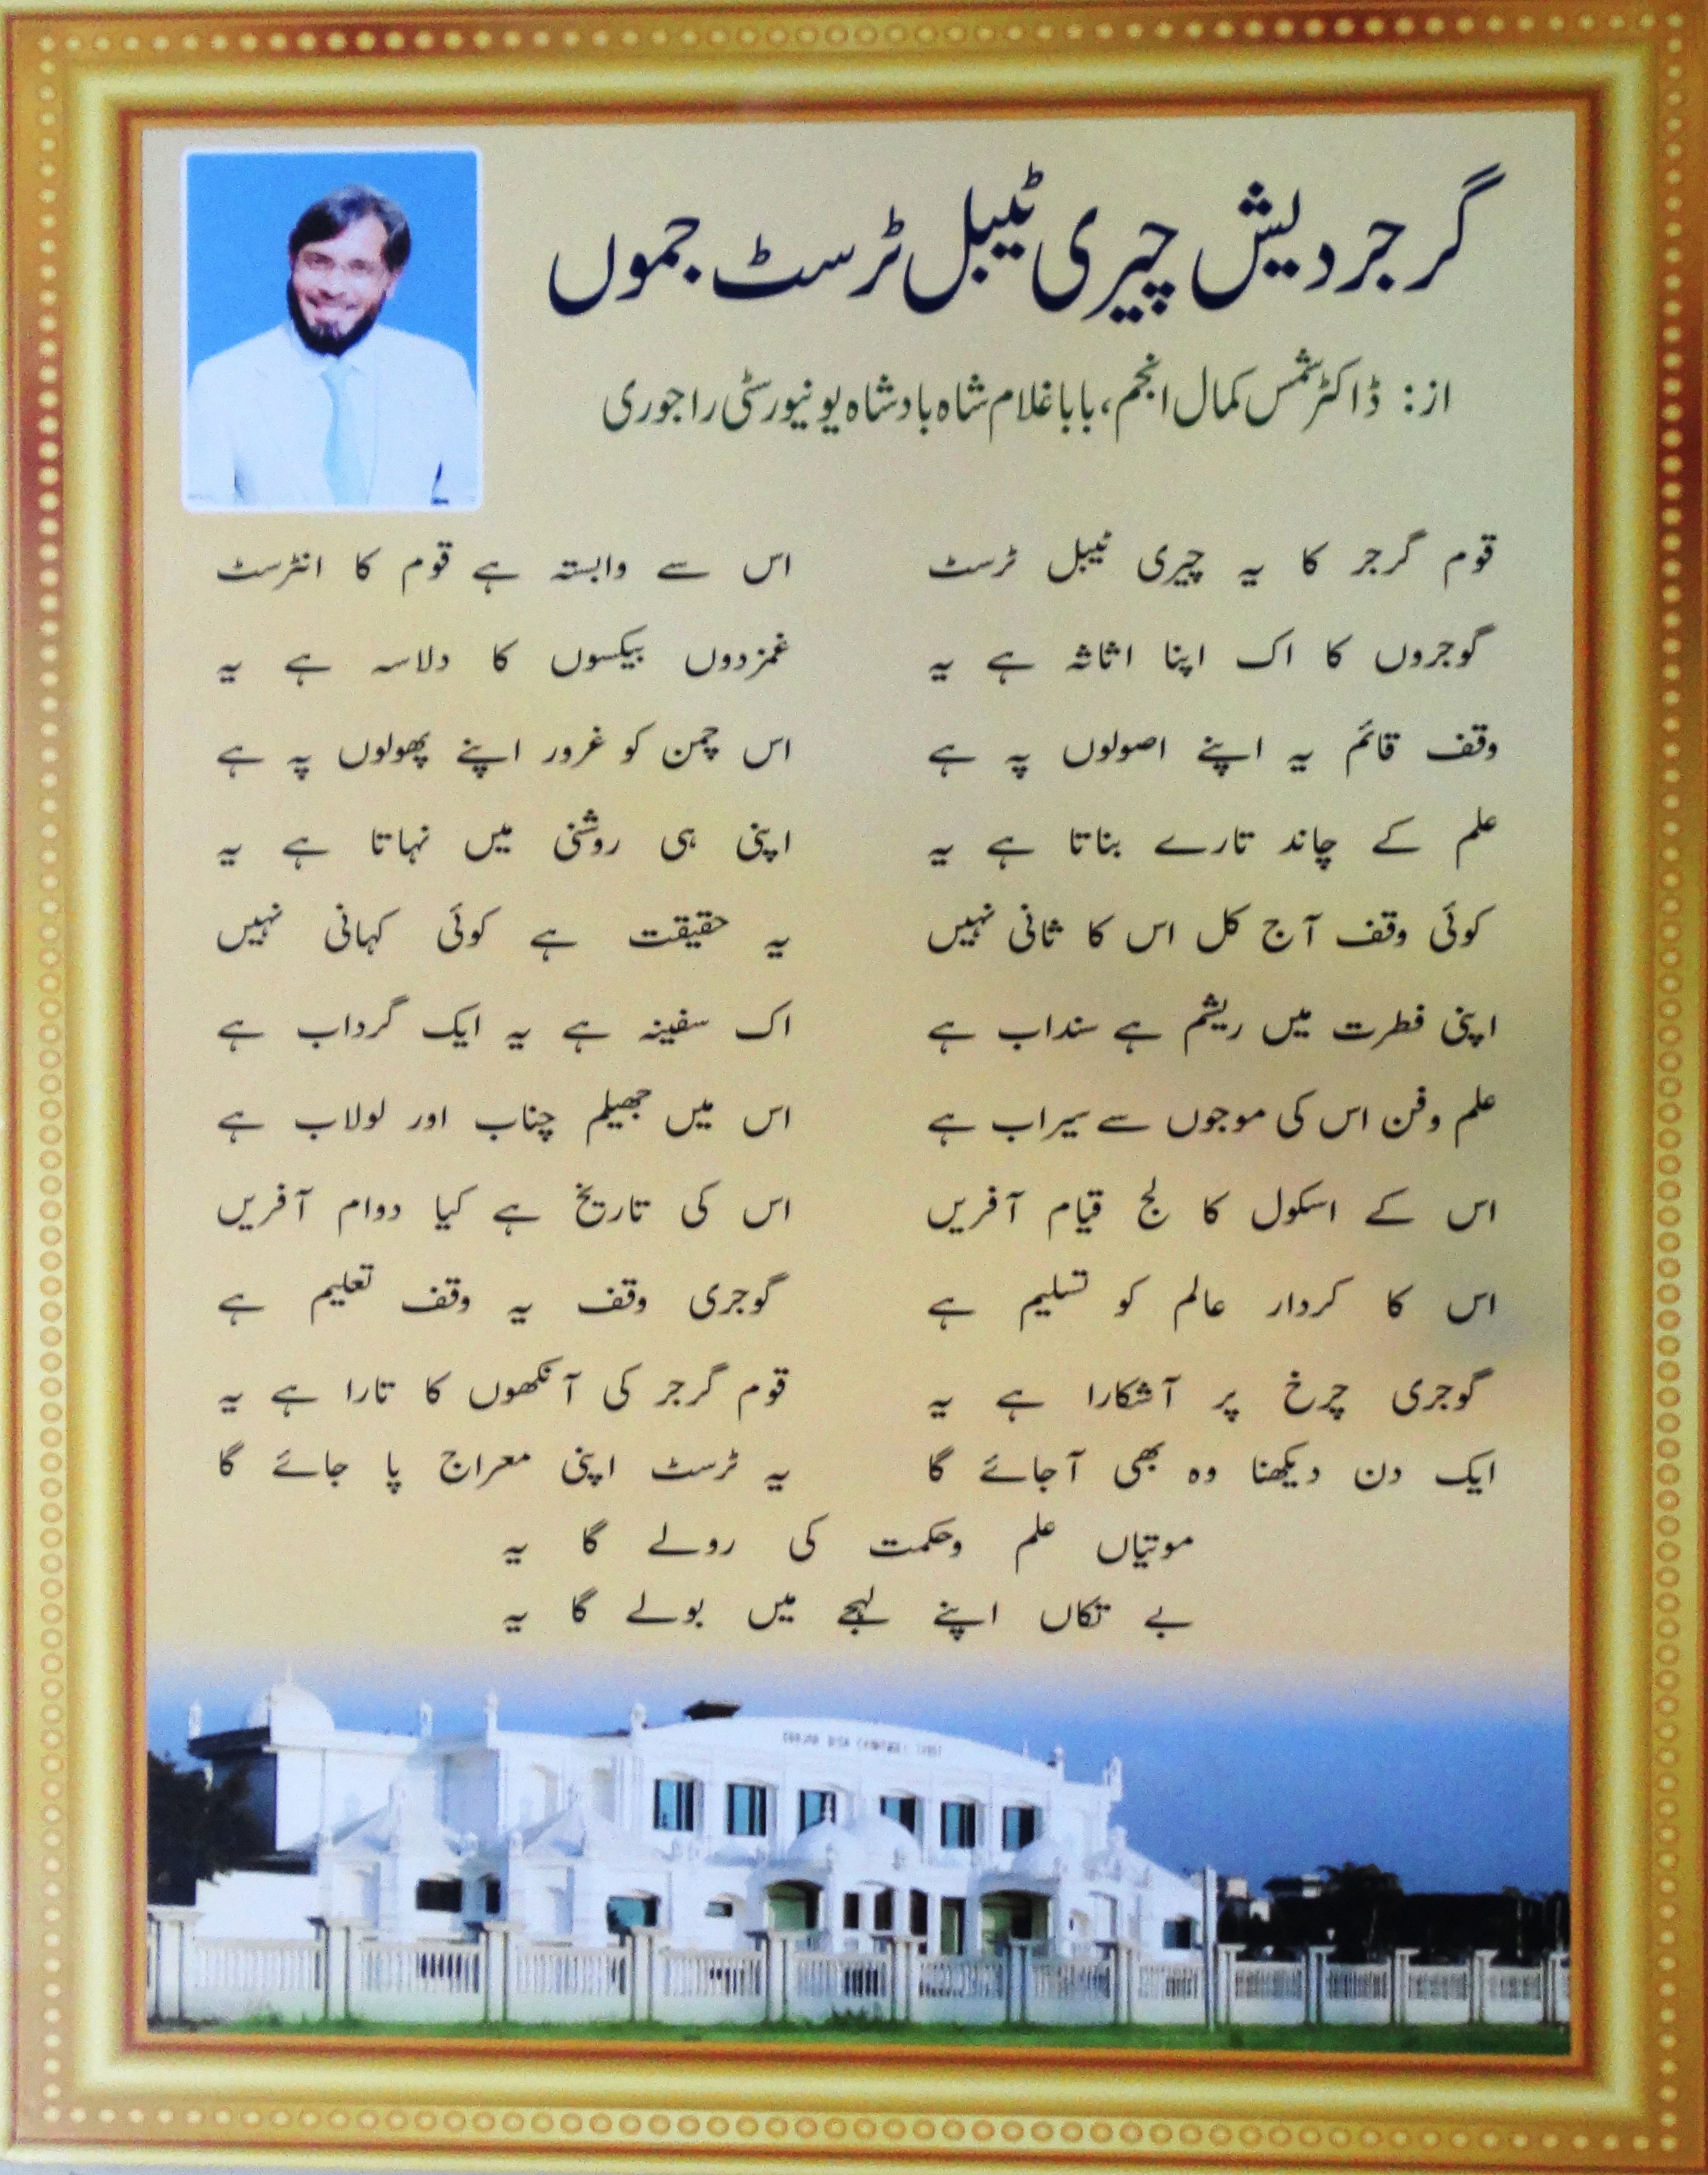 گرجر دیش چیری ٹیبل ٹرسٹ جموں
از: ڈاکٹر شمس کمال انجم، بابا غلام شاہ بادشاہ یونیورسٹی راجوری
قوم گرجر کا یہ چیری ٹیبل ٹرسٹ اس سے وابستہ ہے قوم کا انٹرسٹ
گوجروں کا اک اپنا اثاثہ ہے یہ غمزدوں بیکسوں کا دلاسہ ہے یہ
وقف قائم یہ اپنے اصولوں پہ ہے اس چمن کو غرور اپنے پھولوں پہ ہے
علم کے چاند تارے بناتا ہے یہ اپنی ہی روشنی میں نہاتا ہے یہ
کوئی وقف آج کل اس کا ثانی نہیں یہ حقیقت ہے کوئی کہانی نہیں
اپنی فطرت میں ریشم ہے سنداب ہے اک سفینہ ہے یہ ایک گرداب ہے
علم وفن اس کی موجوں سے سیراب ہے اس میں جھیلم چناب اور لولاب ہے
اس کے اسکول کا لج قیام آفریں اس کی تاریخ ہے کیا دوام آفریں
اس کا کردار عالم کو تسلیم ہے گوجری وقف یہ وقف تعلیم ہے
گوجری چرخ پر آشکارا ہے یہ قوم گرجر کی آنکھوں کا تارا ہے یہ
ایک دن دیکھنا وہ بھی آجائے گا یہ ٹرسٹ اپنی معراج پا جائے گا
موتیاں علم وحکمت کی رولے گا یہ
بے تکاں اپنے لہجے میں بولے گا یہ